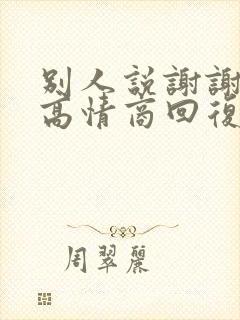 別人説謝謝
高情商回復
周翠麗